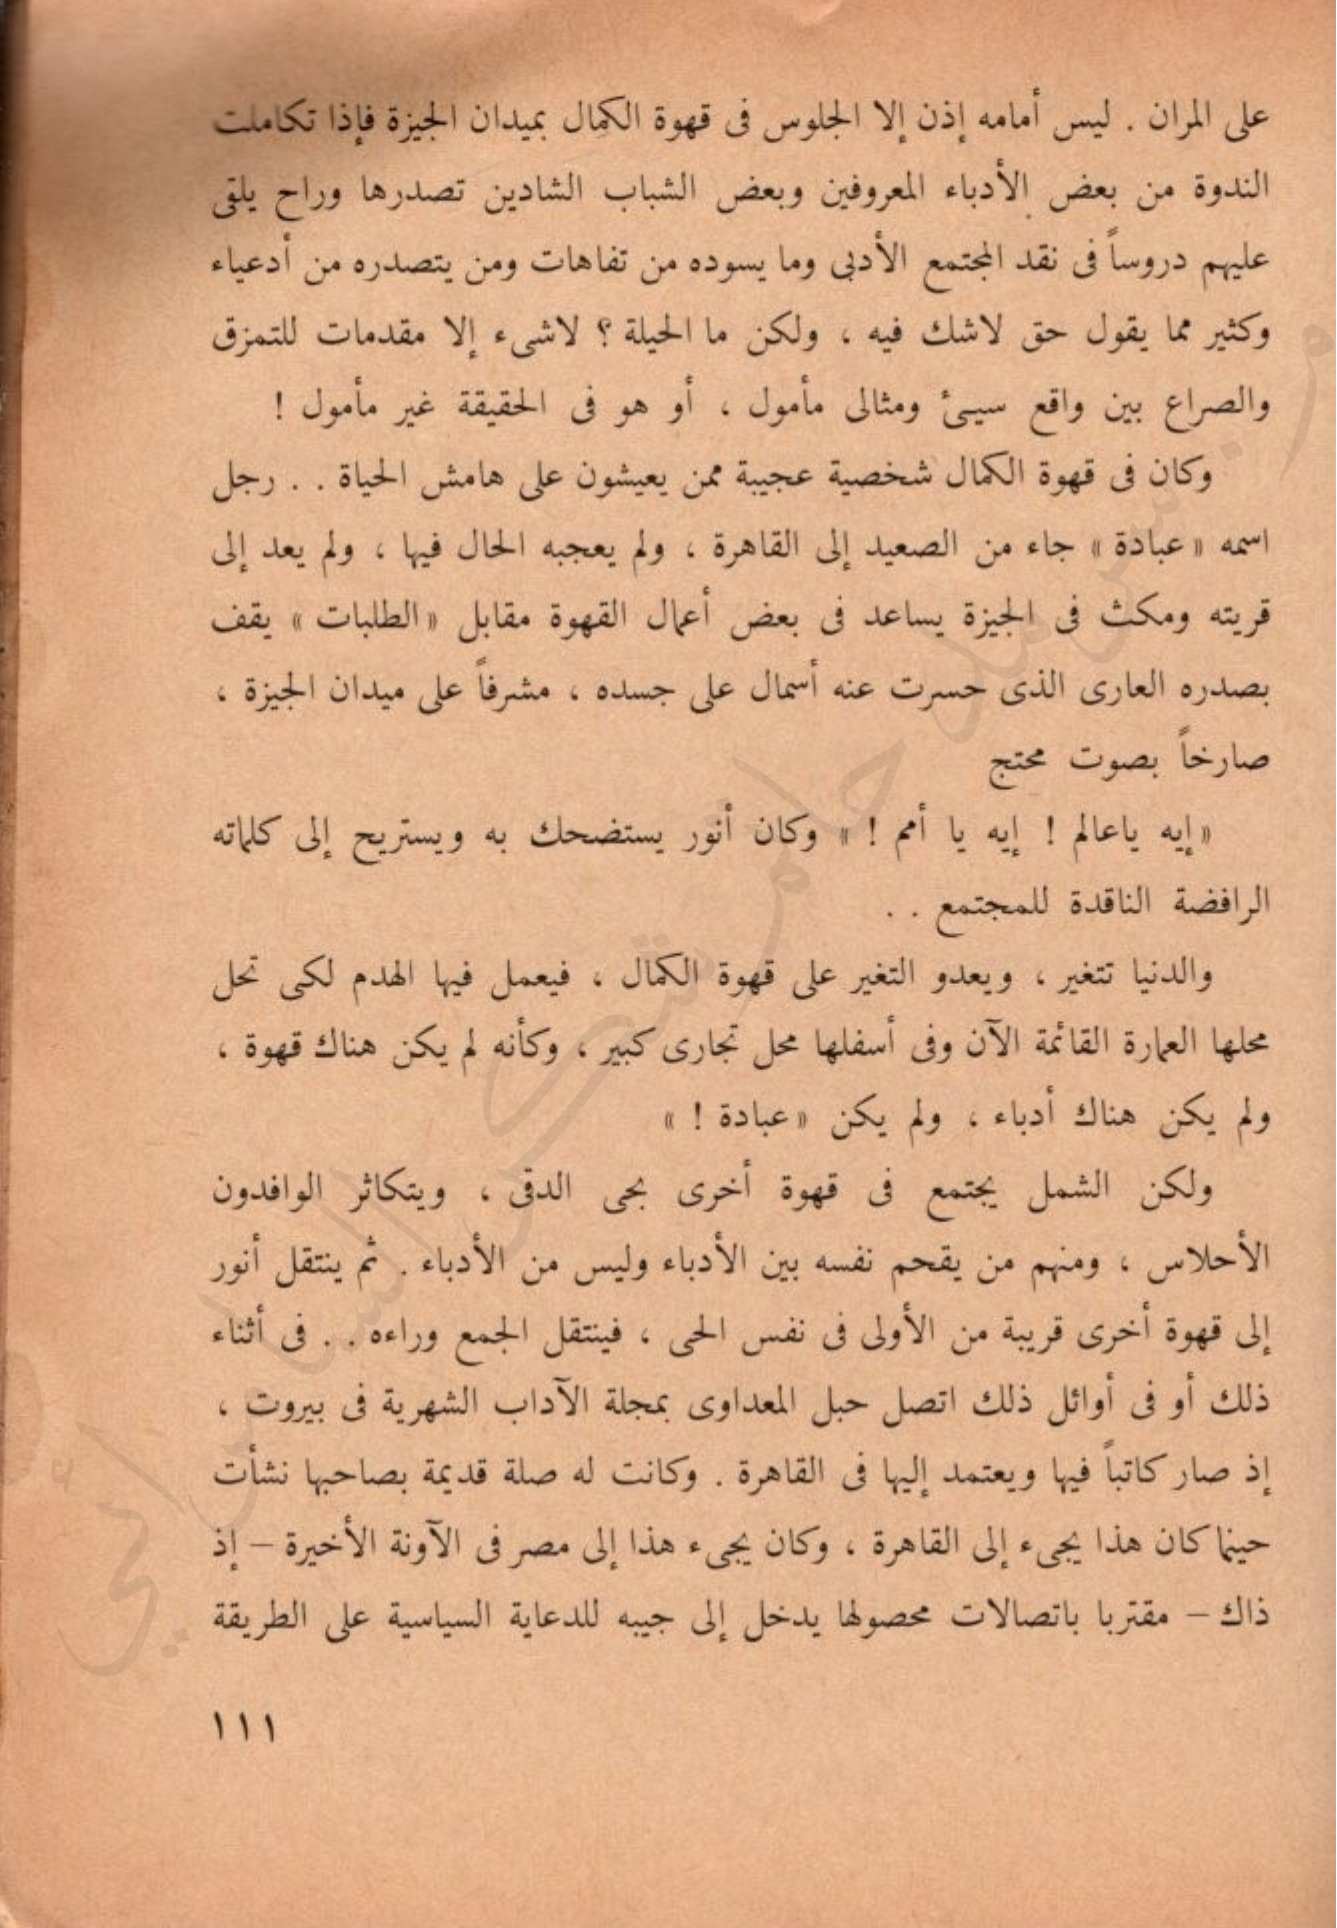 على المران . ليس أمامه إذن إلا الجلوس فى قهوة الكمال بميدان الجيزة فإذا تكاملت
الندوة من بعض الأدباء المعروفين وبعض الشباب الشادين تصدرها وراح يلقى
عليهم دروساً فى نقد المجتمع الأدبى وما يسوده من تفاهات ومن يتصدره من أدعياء
وكثير مما يقول حق لاشك فيه ، ولكن ما الحيلة ؟ لاشىء إلا مقدمات للتمزق
والصراع بين واقع سيئ ومثالى مأمول ، أو هو فى الحقيقة غير مأمول !
وكان فى قهوة الكمال شخصية عجيبة ممن يعيشون على هامش الحياة . . رجل
اسمه « عبادة » جاء من الصعيد إلى القاهرة ، ولم يعجبه الحال فيها ، ولم يعد إلى
قريته ومكث فى الجيزة يساعد فى بعض أعمال القهوة مقابل « الطلبات » يقف
بصدره العارى الذى حسرت عنه أسمال على جسده ، مشرفاً على ميدان الجيزة ،
صارخاً بصوت محتج
« إيه ياعالم ! إيه يا أمم ! » وكان أنور يستضحك به ويستريح إلى كلماته
الرافضة الناقدة للمجتمع . .
والدنيا تتغير ، ويعدو التغير على قهوة الكمال ، فيعمل فيها الهدم لكى تحل
محلها العمارة القائمة الآن وفى أسفلها محل تجارى كبير ، وكأنه لم يكن هناك قهوة ،
ولم يكن هناك أدباء ، ولم يكن « عبادة ! »
ولكن الشمل يجتمع فى قهوة أخرى بحى الدقى ، ويتكاثر الوافدون
الأحلاس ، ومنهم من يقحم نفسه بين الأدباء وليس من الأدباء . ثم ينتقل أنور
إلى قهوة أخرى قريبة من الأولى فى نفس الحى ، فينتقل الجمع وراءه . . فى أثناء
ذلك أو فى أوائل ذلك اتصل حبل المعداوى بمجلة الآداب الشهرية فى بيروت ،
إذ صار كاتباً فيها ويعتمد إليها فى القاهرة . وكانت له صلة قديمة بصاحبها نشأت
حينما كان هذا يجىء إلى القاهرة ، وكان يجىء هذا إلى مصر فى الآونة الأخيرة – إذ
ذاك – مقتربا باتصالات محصولها يدخل إلى جيبه للدعاية السياسية على الطريقة
١١١